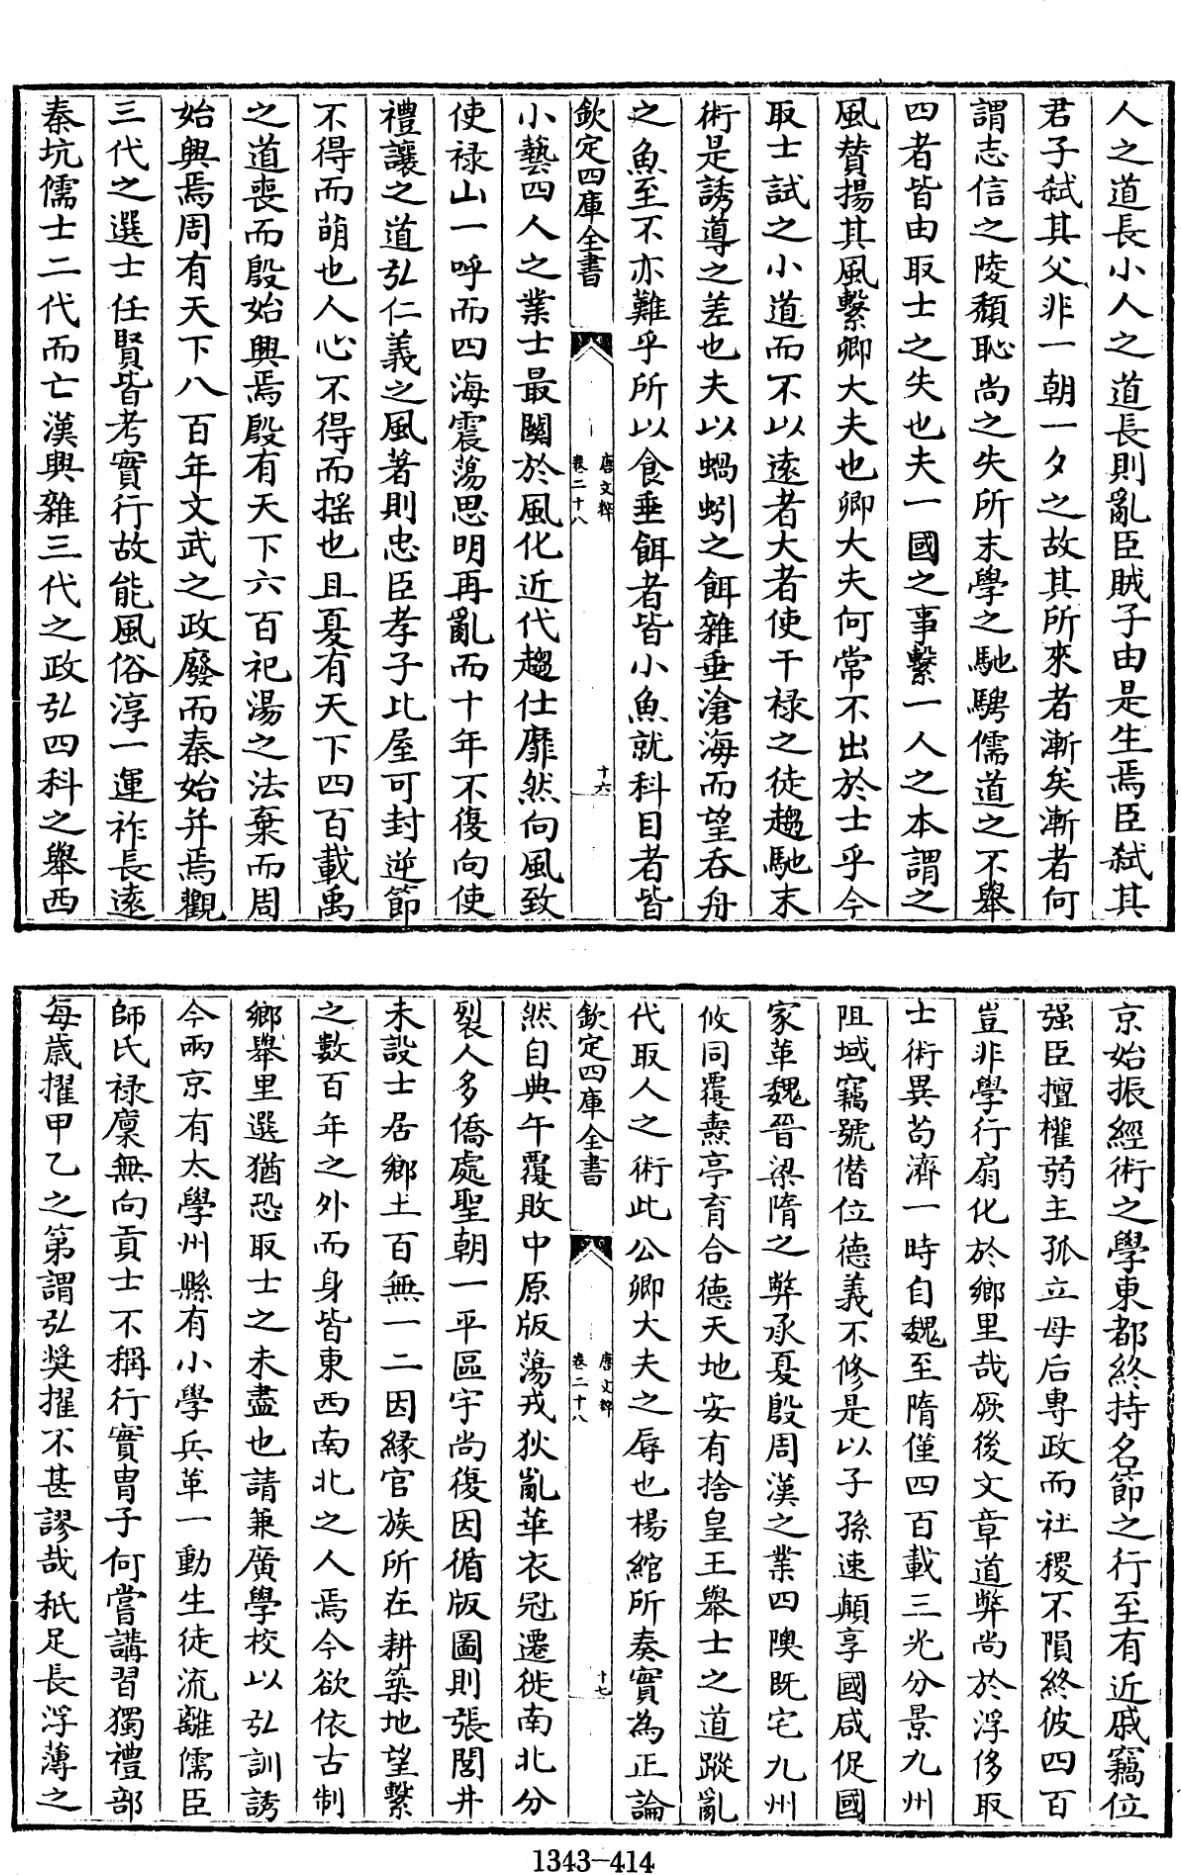 人之道長小人之道長則亂臣賊子由是生焉臣弑其
君子弑其父非一朝一夕之故其所來者漸矣漸者何
謂志信之陵頹恥尚之失所末學之馳騁儒道之不舉
四者皆由取士之失也夫一國之事繫一人之本謂之
風賛揚其風繫卿大夫也卿大夫何常不出於士乎今
取士試之小道而不以逺者大者使干禄之徒趨馳末
術是誘導之差也夫以蝸蚓之餌雜垂滄海而望呑舟
之魚至不亦難乎所以食垂餌者皆小魚就科目者皆
欽定四庫全書
唐文粹
卷二十八
十六
小藝四人之業士最關於風化近代趨仕靡然向風致
使禄山一呼而四海震蕩思明再亂而十年不復向使
禮讓之道弘仁義之風著則忠臣孝子比屋可封逆節
不得而萌也人心不得而揺也且夏有天下四百載禹
之道喪而殷始興焉殷有天下六百祀湯之法棄而周
始興焉周有天下八百年文武之政廢而秦始并焉觀
三代之選士任賢皆考實行故能風俗淳一運祚長逺
秦坑儒士二代而亡漢興雜三代之政弘四科之舉西
京始振經術之學東都終持名節之行至有近戚竊位
强臣擅權弱主孤立母后專政而社稷不隕終彼四百
豈非學行扇化於鄉里哉厥後文章道弊尚於浮侈取
士術異苟濟一時自魏至隋僅四百載三光分景九州
阻域竊號僭位德義不修是以子孫速顛享國咸促國
家革魏晉梁隋之弊承夏殷周漢之業四隩既宅九州
攸同覆燾亭育合德天地安有捨皇王舉士之道蹤亂
代取人之術此公卿大夫之辱也楊綰所奏實為正論
欽定四庫全書
唐文粹
卷二十八
十七
然自典午覆敗中原版蕩戎狄亂華衣冠遷徙南北分
裂人多僑處聖朝一平區宇尚復因循版圖則張閭井
未設士居鄉土百無一二因縁官族所在耕築地望繫
之數百年之外而身皆東西南北之人焉今欲依古制
鄉舉里選猶恐取士之未盡也請兼廣學校以弘訓誘
今兩京有太學州縣有小學兵革一動生徒流離儒臣
師氏禄廩無向貢士不稱行實胄子何嘗講習獨禮部
每歳擢甲乙之第謂弘奬擢不甚謬哉秖足長浮薄之
1343-414